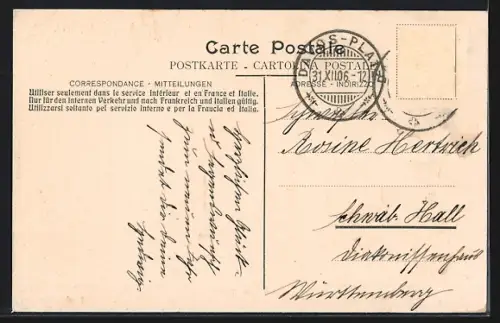 Carte Postale
POSTKARTE - CARTOLINA POSTALE
CORRESPONDANCE - MITTEILUNGEN
Utiliser seulement dans le service intérieur et en France et Italie.
Nur für den internen Verkehr und nach Frankreich und Italien gültig.
Utilizzarsi soltanto pel servizio interno e per la Francia ed Italia.
ADRESSE - INDIRIZZO
DAVOS-PLATZ
31.XII.06.-12
Schwester
Rosine Hertrich
Schwäb. Hall
Diakonissenhaus
Württemberg
Herzlichen Glück-
u. Segenswunsch
zum neuen Jahr
sendet die Deine
Hedwig